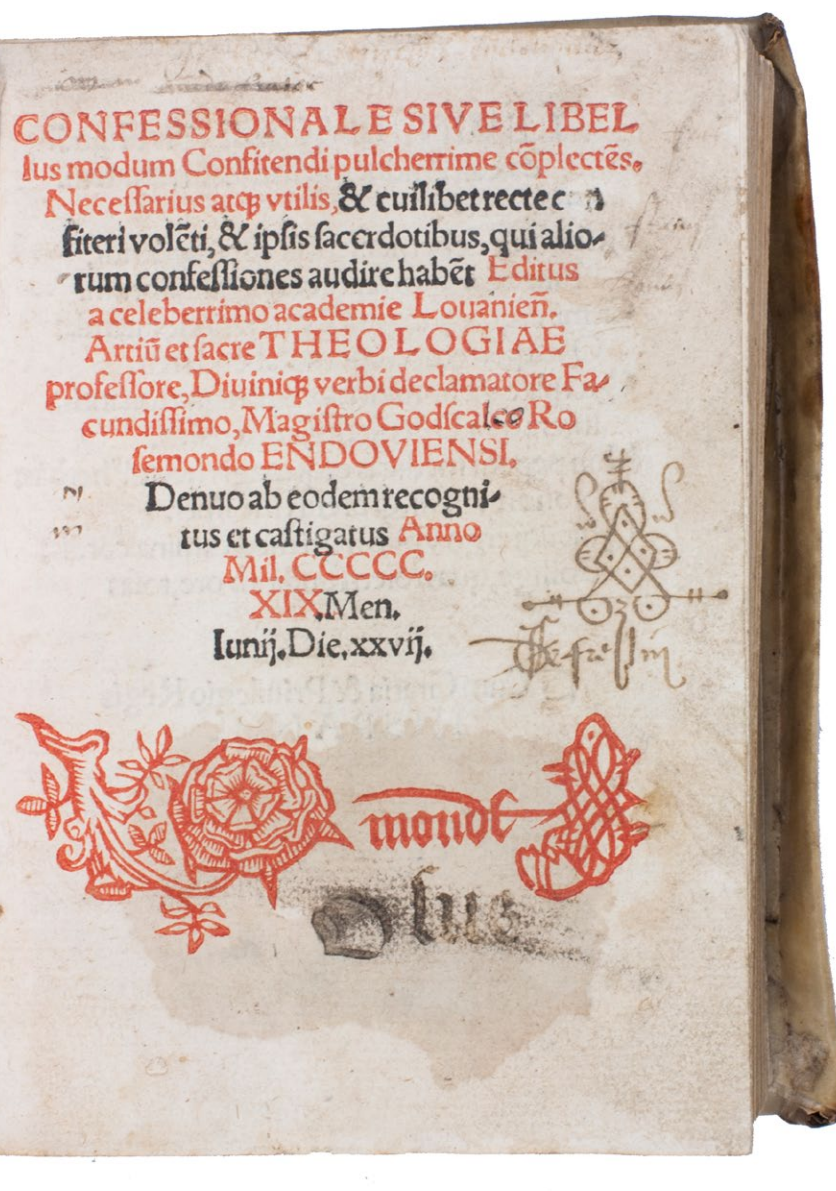 CONFESSIONALE SIVE LIBEL
lus modum Confitendi pulcherrime cõplectẽs.
Necessarius atqꝫ vtilis, & cuilibet recte con
fiteri volẽti, & ipsis sacerdotibus, qui alio-
rum confessiones audire habẽt Editus
a celeberrimo academie Louanieñ.
Artiũ et sacre THEOLOGIAE
professore, Diuiniqꝫ verbi declamatore Fa-
cundissimo, Magistro Godscalco Ro
semondo ENDOVIENSI.
Denuo ab eodem recogni-
tus et castigatus Anno
Mil. CCCCC.
XIX. Men.
Iunij. Die. xxvij.
mondt